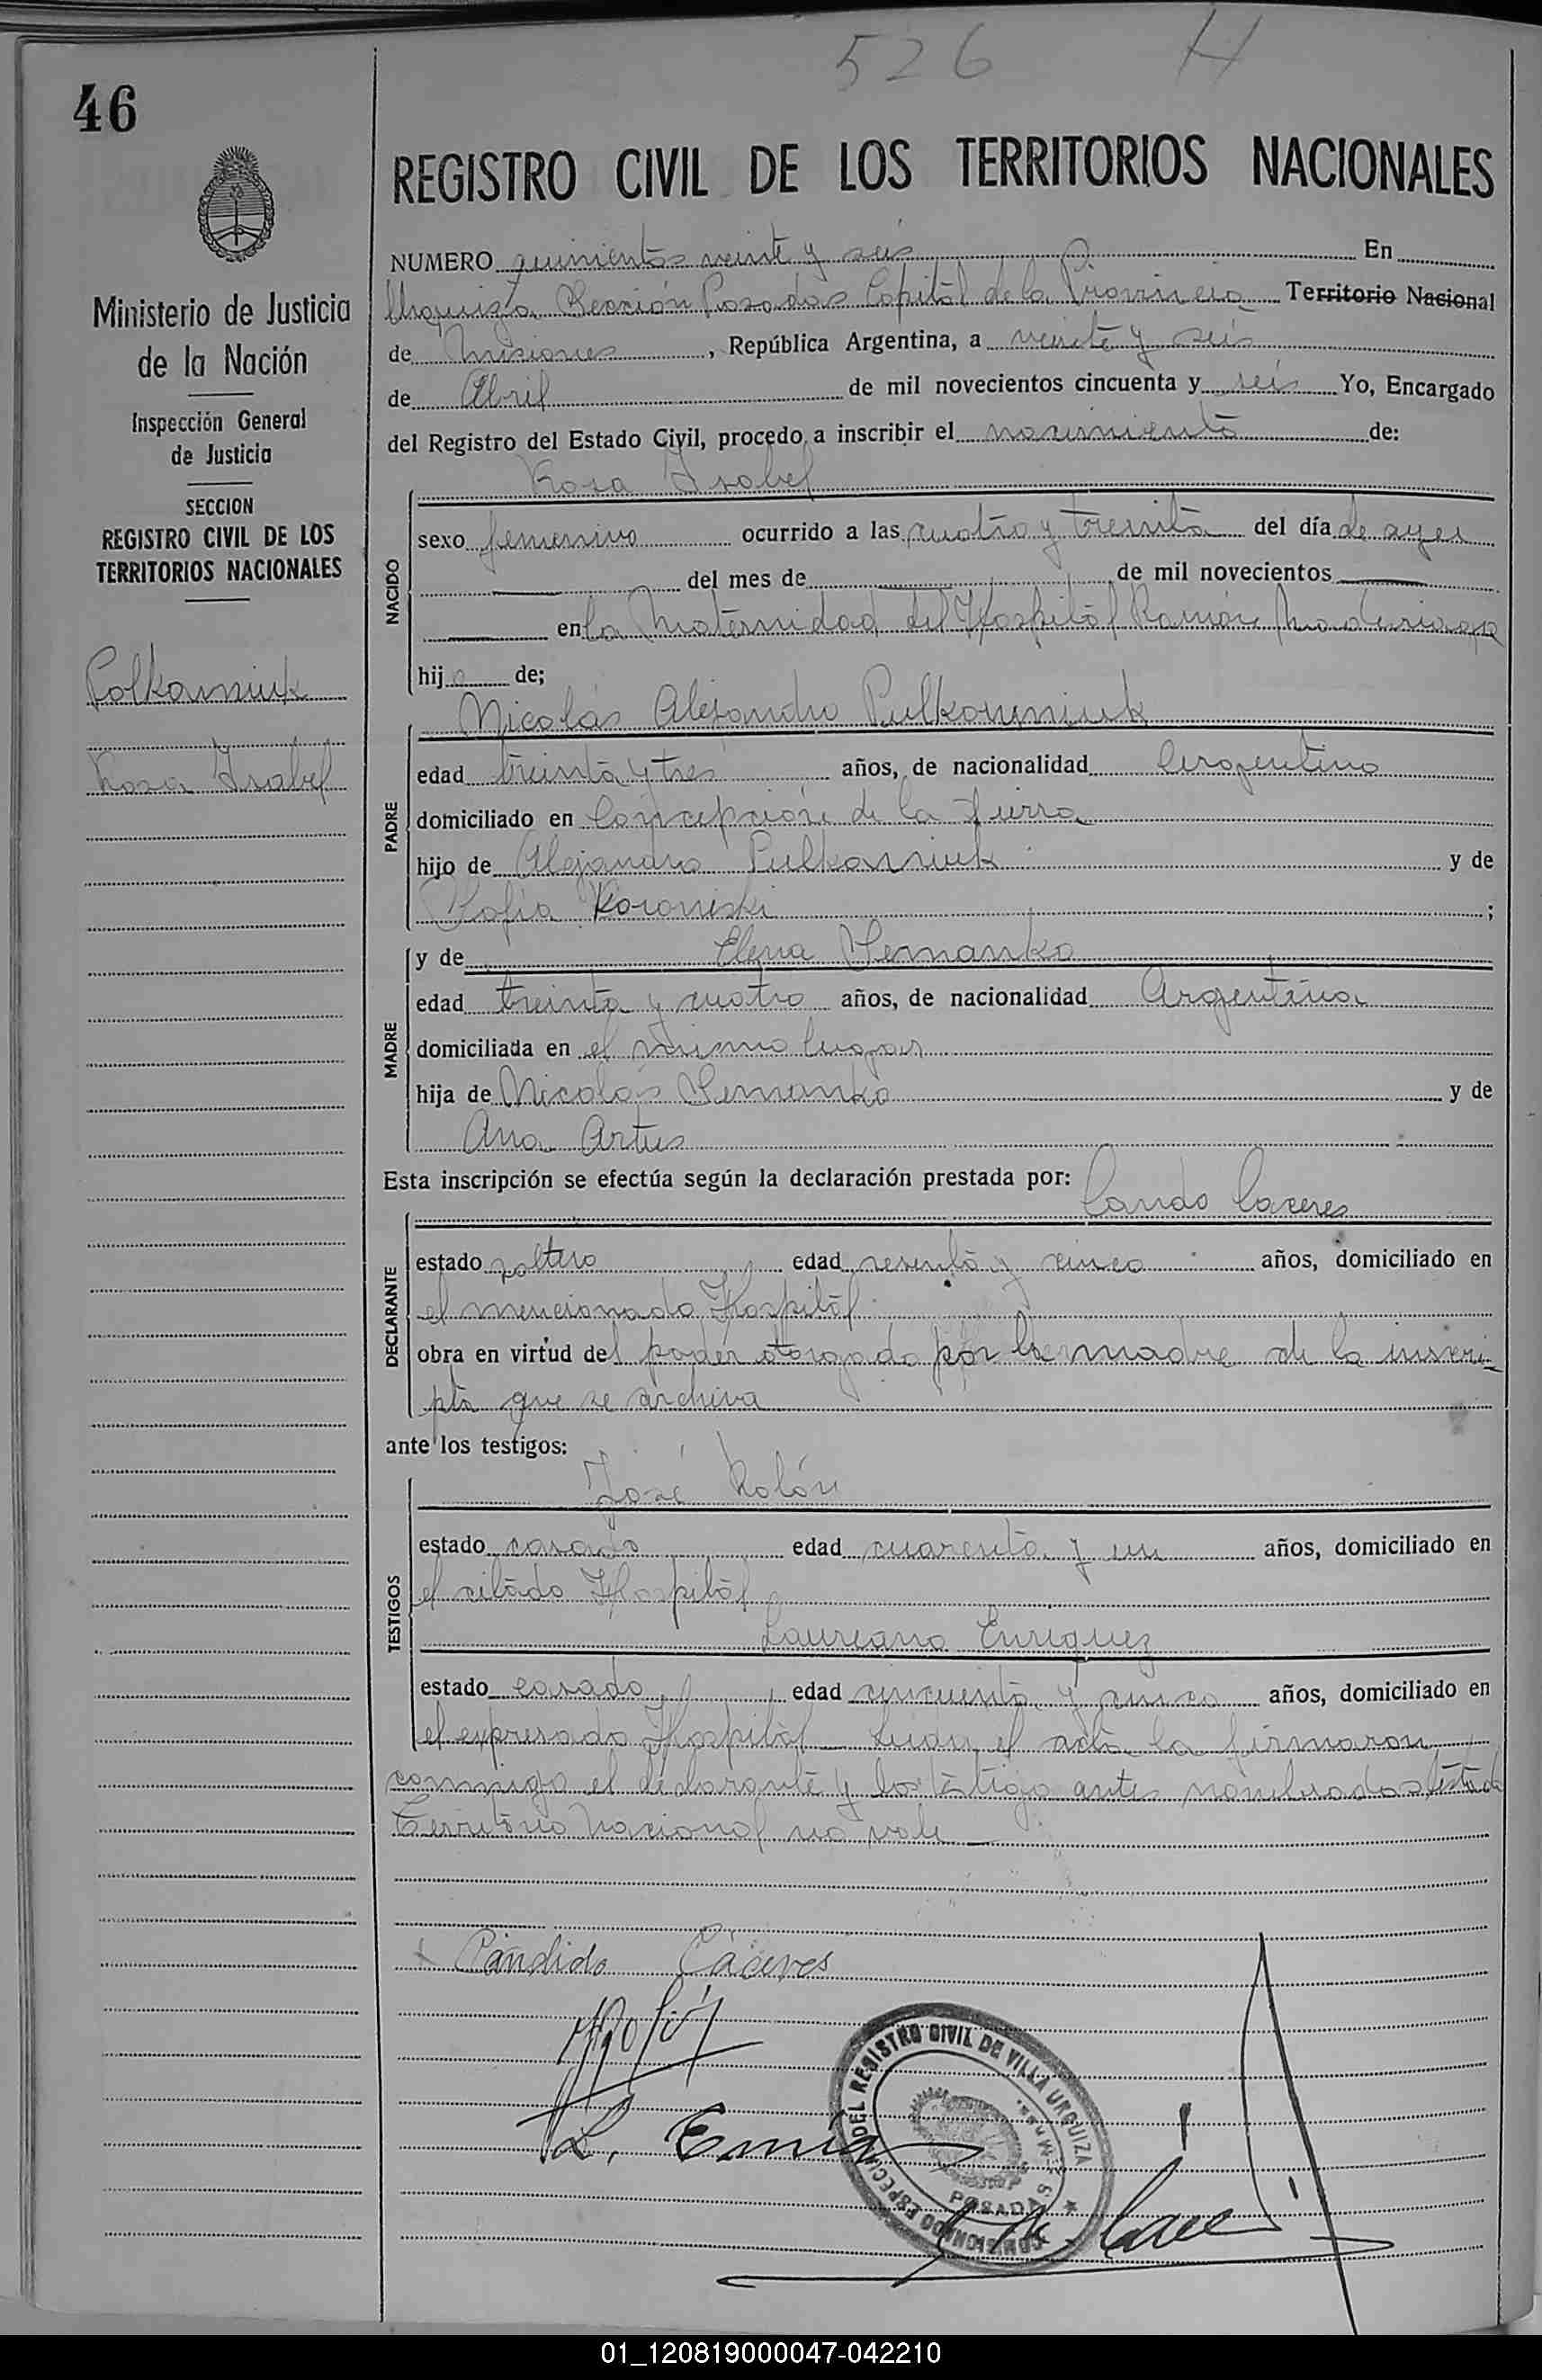 526 H
46
REGISTRO CIVIL DE LOS TERRITORIOS NACIONALES
Ministerio de Justicia
de la Nación
Inspección General
de Justicia
SECCION
REGISTRO CIVIL DE LOS
TERRITORIOS NACIONALES
Polkowniuk
Rosa Isabel
NUMERO quinientos veinte y seis En
Urquiza Sección Posadas Capital de la Provincia Territorio Nacional
de Misiones, República Argentina, a veinte y seis
de Abril de mil novecientos cincuenta y seis Yo, Encargado
del Registro del Estado Civil, procedo a inscribir el nacimiento de:
Rosa Isabel
NACIDO
sexo femenino ocurrido a las cuatro y treinta del día de ayer
del mes de de mil novecientos
en la Maternidad del Hospital Ramón Madariaga
hija de;
Nicolás Alejandro Pulkowniuk
PADRE
edad treinta y tres años, de nacionalidad Argentino
domiciliado en Concepción de la Sierra
hijo de Alejandro Pulkowniuk y de
Sofia Koroniski ;
MADRE
y de Elena Semanko
edad treinta y cuatro años, de nacionalidad Argentina
domiciliada en el mismo lugar
hija de Nicolás Semanko y de
Ana Artus
Esta inscripción se efectúa según la declaración prestada por:
Cando Caceres
DECLARANTE
estado soltero edad sesenta y cinco años, domiciliado en
el mencionado Hospital
obra en virtud del poder otorgado por la madre de la inscri-
pta que se archiva
ante los testigos:
José Rolón
TESTIGOS
estado casado edad cuarenta y un años, domiciliado en
el citado Hospital
Laureano Enriquez
estado casado edad cincuenta y cinco años, domiciliado en
el expresado Hospital Leida el acta la firmaron
conmigo el declarante y los testigo antes nombrados testado
Territorio Nacional no vale
Cándido Cáceres
L.
COMISIONADO ESPECIAL DEL REGISTRO CIVIL DE VILLA URQUIZA
POSADAS
01_120819000047-042210